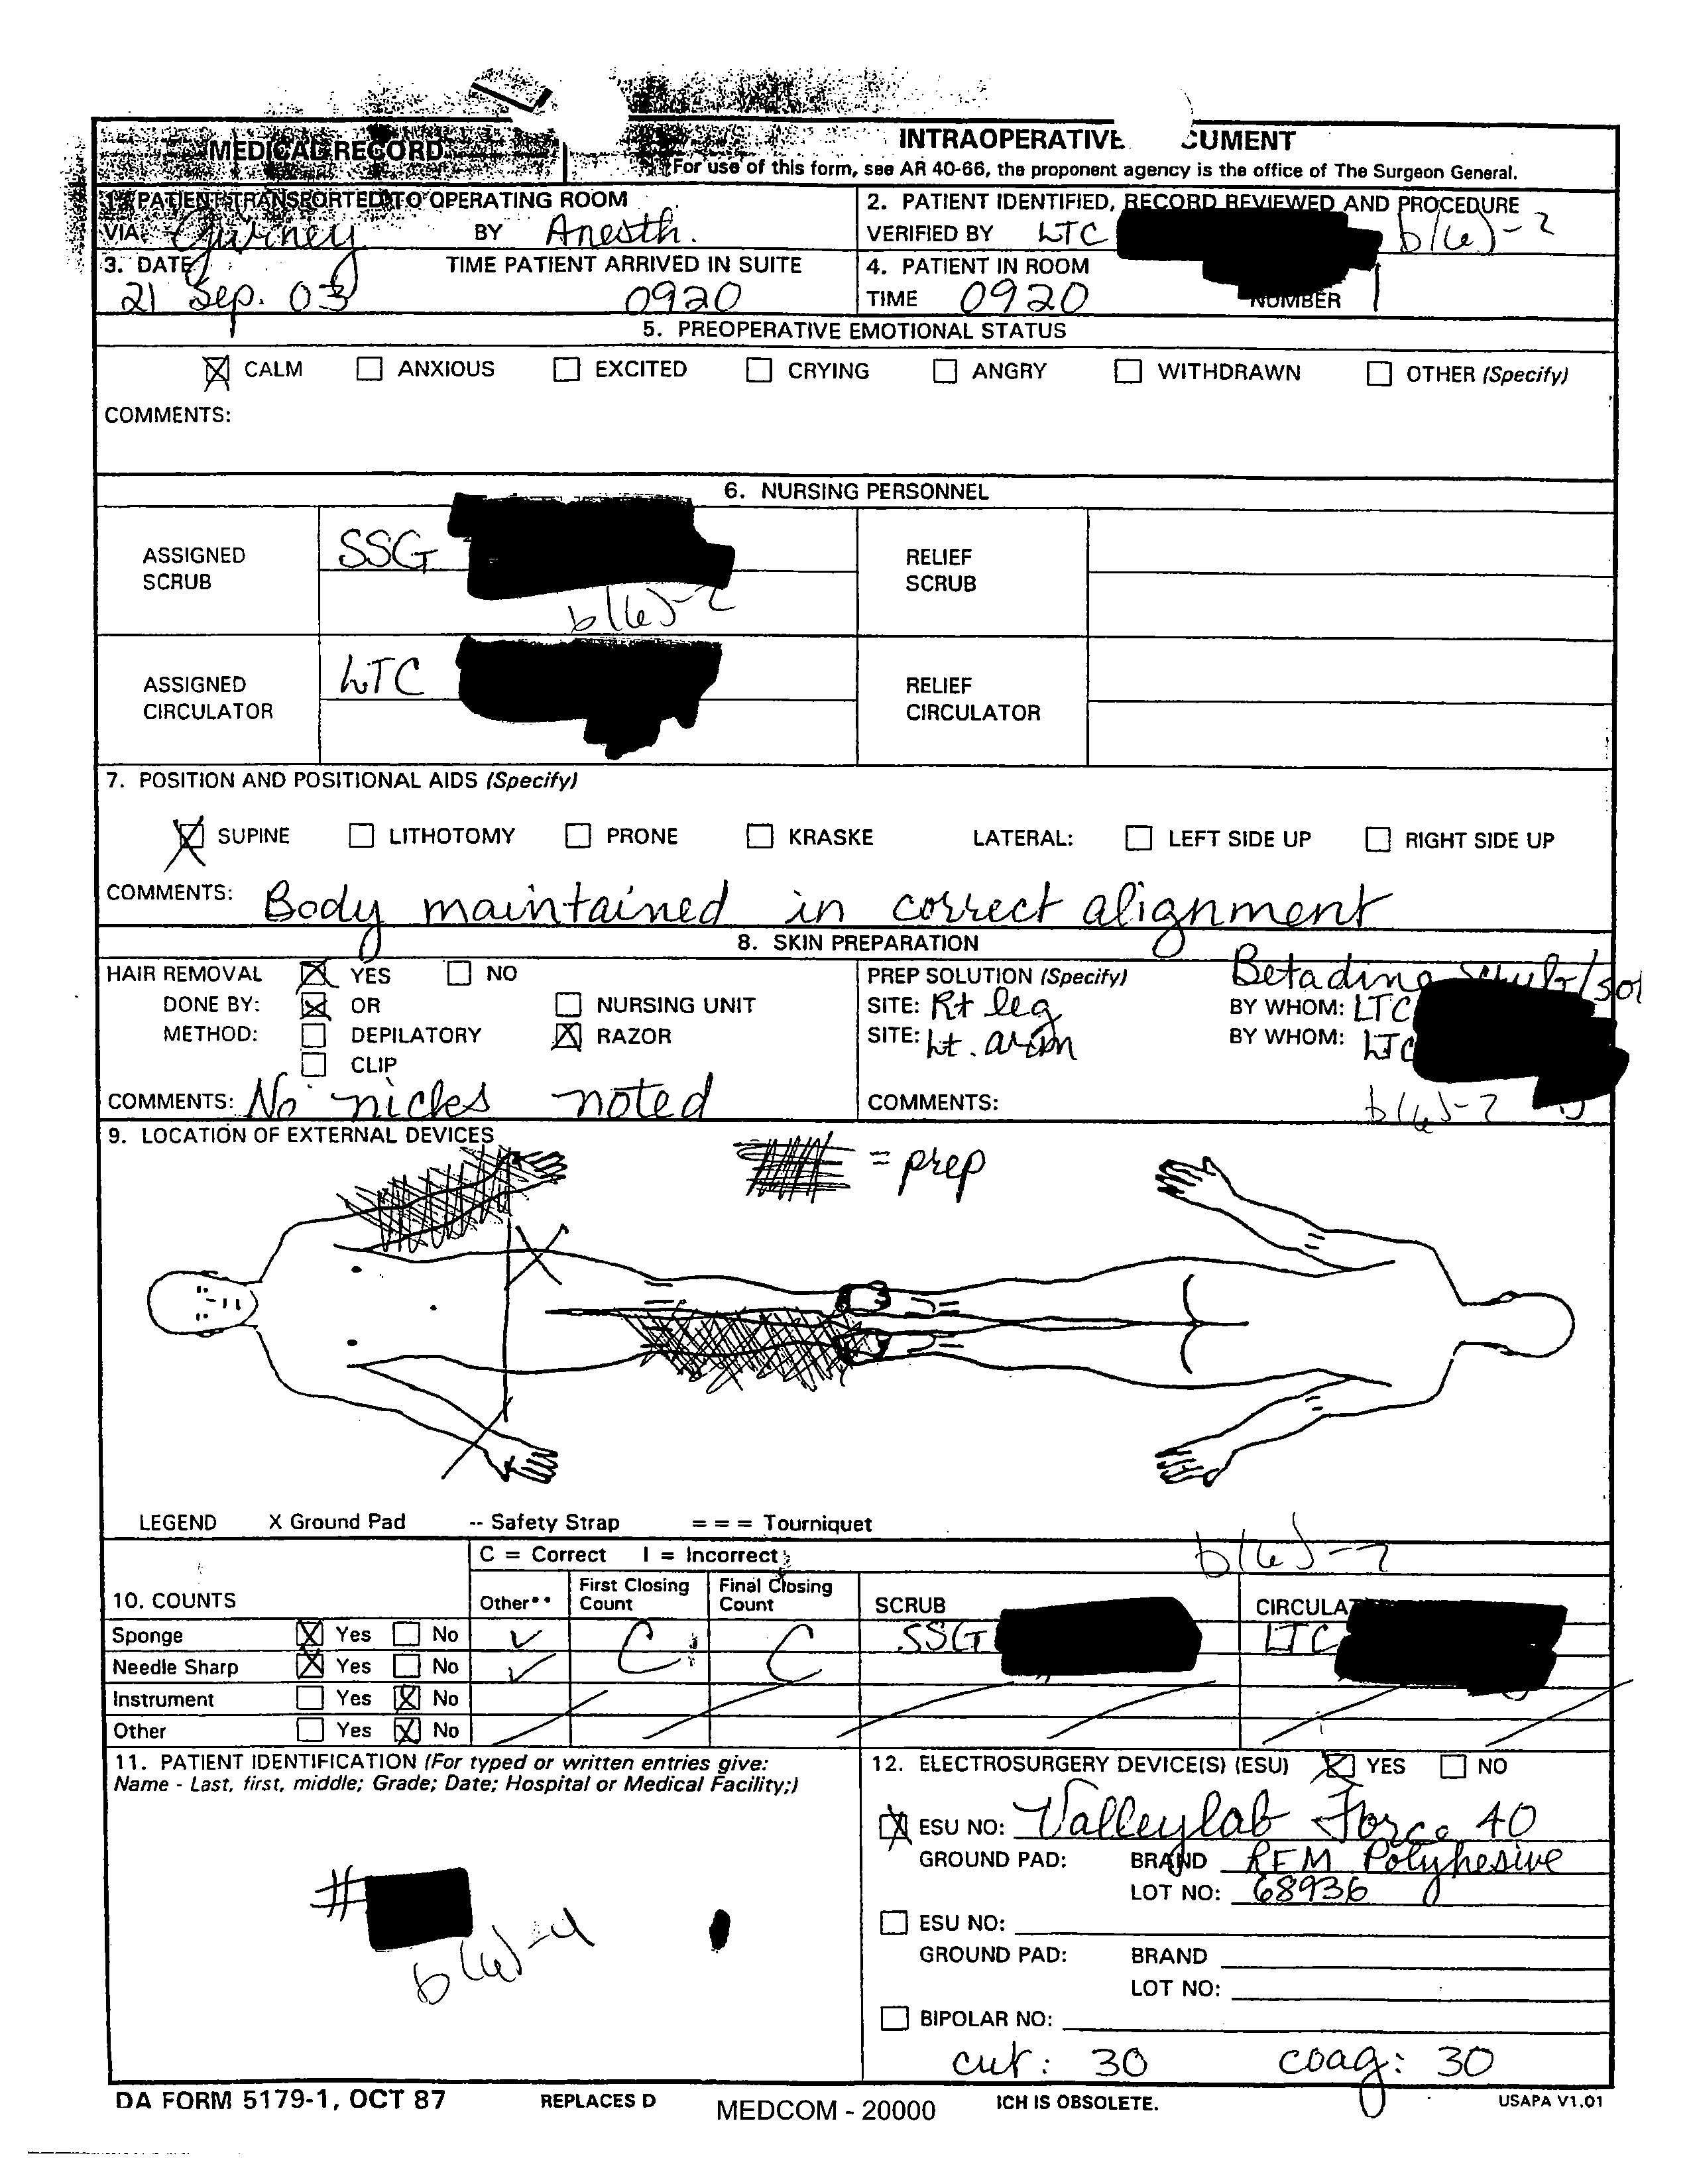 MEDICAL RECORD
INTRAOPERATIVE CUMENT
For use of this form, see AR 40-66, the proponent agency is the office of The Surgeon General.
1. PATIENT TRANSPORTED TO OPERATING ROOM
VIA Gurney BY Anesth.
2. PATIENT IDENTIFIED, RECORD REVIEWED AND PROCEDURE
VERIFIED BY LTC b(6)-2
3. DATE TIME PATIENT ARRIVED IN SUITE
21 Sep. 03 0920
4. PATIENT IN ROOM
TIME 0920 NUMBER 1
5. PREOPERATIVE EMOTIONAL STATUS
☒ CALM ☐ ANXIOUS ☐ EXCITED ☐ CRYING ☐ ANGRY ☐ WITHDRAWN ☐ OTHER (Specify)
COMMENTS:
6. NURSING PERSONNEL
ASSIGNED SCRUB SSG b(6)-2
RELIEF SCRUB
ASSIGNED CIRCULATOR LTC
RELIEF CIRCULATOR
7. POSITION AND POSITIONAL AIDS (Specify)
☒ SUPINE ☐ LITHOTOMY ☐ PRONE ☐ KRASKE LATERAL: ☐ LEFT SIDE UP ☐ RIGHT SIDE UP
COMMENTS: Body maintained in correct alignment
8. SKIN PREPARATION
HAIR REMOVAL ☒ YES ☐ NO
DONE BY: ☒ OR ☐ NURSING UNIT
METHOD: ☐ DEPILATORY ☒ RAZOR
☐ CLIP
COMMENTS: No nicks noted
PREP SOLUTION (Specify) Betadine scrub/sol
SITE: Rt leg BY WHOM: LTC
SITE: Lt. arm BY WHOM: LTC
COMMENTS: b(6)-2
9. LOCATION OF EXTERNAL DEVICES
= prep
LEGEND X Ground Pad -- Safety Strap = = = Tourniquet
b(6)-2
C = Correct I = Incorrect
10. COUNTS Other** First Closing Count Final Closing Count SCRUB CIRCULAT
Sponge ☒ Yes ☐ No ✓ C C SSG LTC
Needle Sharp ☒ Yes ☐ No ✓
Instrument ☐ Yes ☒ No
Other ☐ Yes ☒ No
11. PATIENT IDENTIFICATION (For typed or written entries give:
Name - Last, first, middle; Grade; Date; Hospital or Medical Facility;)
#
b(6)-4
12. ELECTROSURGERY DEVICE(S) (ESU) ☒ YES ☐ NO
☒ ESU NO: Valleylab Force 40
GROUND PAD: BRAND REM Polyhesive
LOT NO: 68936
☐ ESU NO:
GROUND PAD: BRAND
LOT NO:
☐ BIPOLAR NO:
cut: 30 coag: 30
DA FORM 5179-1, OCT 87 REPLACES D MEDCOM - 20000 ICH IS OBSOLETE. USAPA V1.01